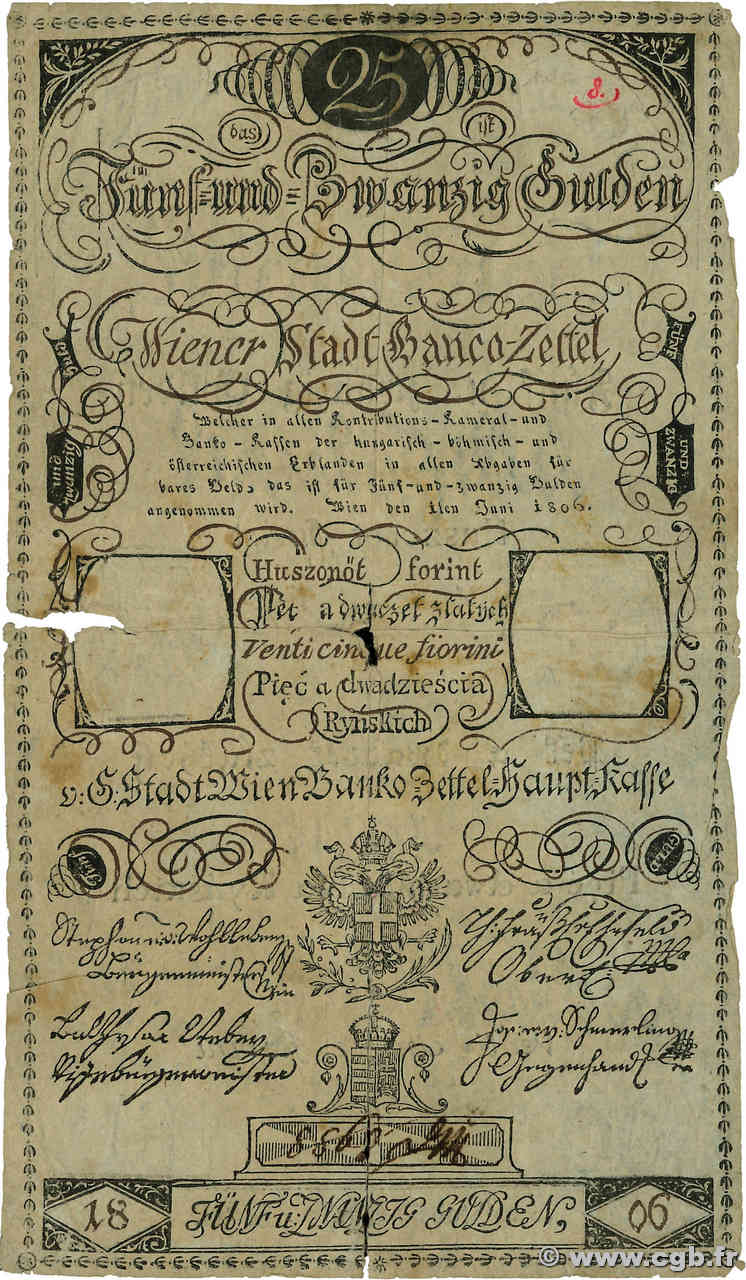 25
8.
das ist
Fünf-und-Zwanzig Gulden
in
Wiener Stadt Banco-Zettel,
FÜNF
UND-
ZWANZIG
und
zwanzig
Welcher in allen Kontributions-Kameral-und
Banko-Kassen der hungarisch-böhmisch-und
österreichischen Erblanden in allen Abgaben für
bares Geld, das ist für Fünf-und-zwanzig Gulden
angenommen wird. Wien den 1ten Juni 1806.
Huszonöt forint
Pět a dwaczet zlatych
Venti cinque fiorini
Pięć a dwadzieścia
Ryńskich
v: G: Stadt Wien Banko Zettel-Haupt-Kasse
Stephan
Bürgerminister
Wien
Vizebürgerminister
Jos: v: Schmerling
Gegenhand
18 FÜNF u: GULDEN, 06
© www.cgb.fr